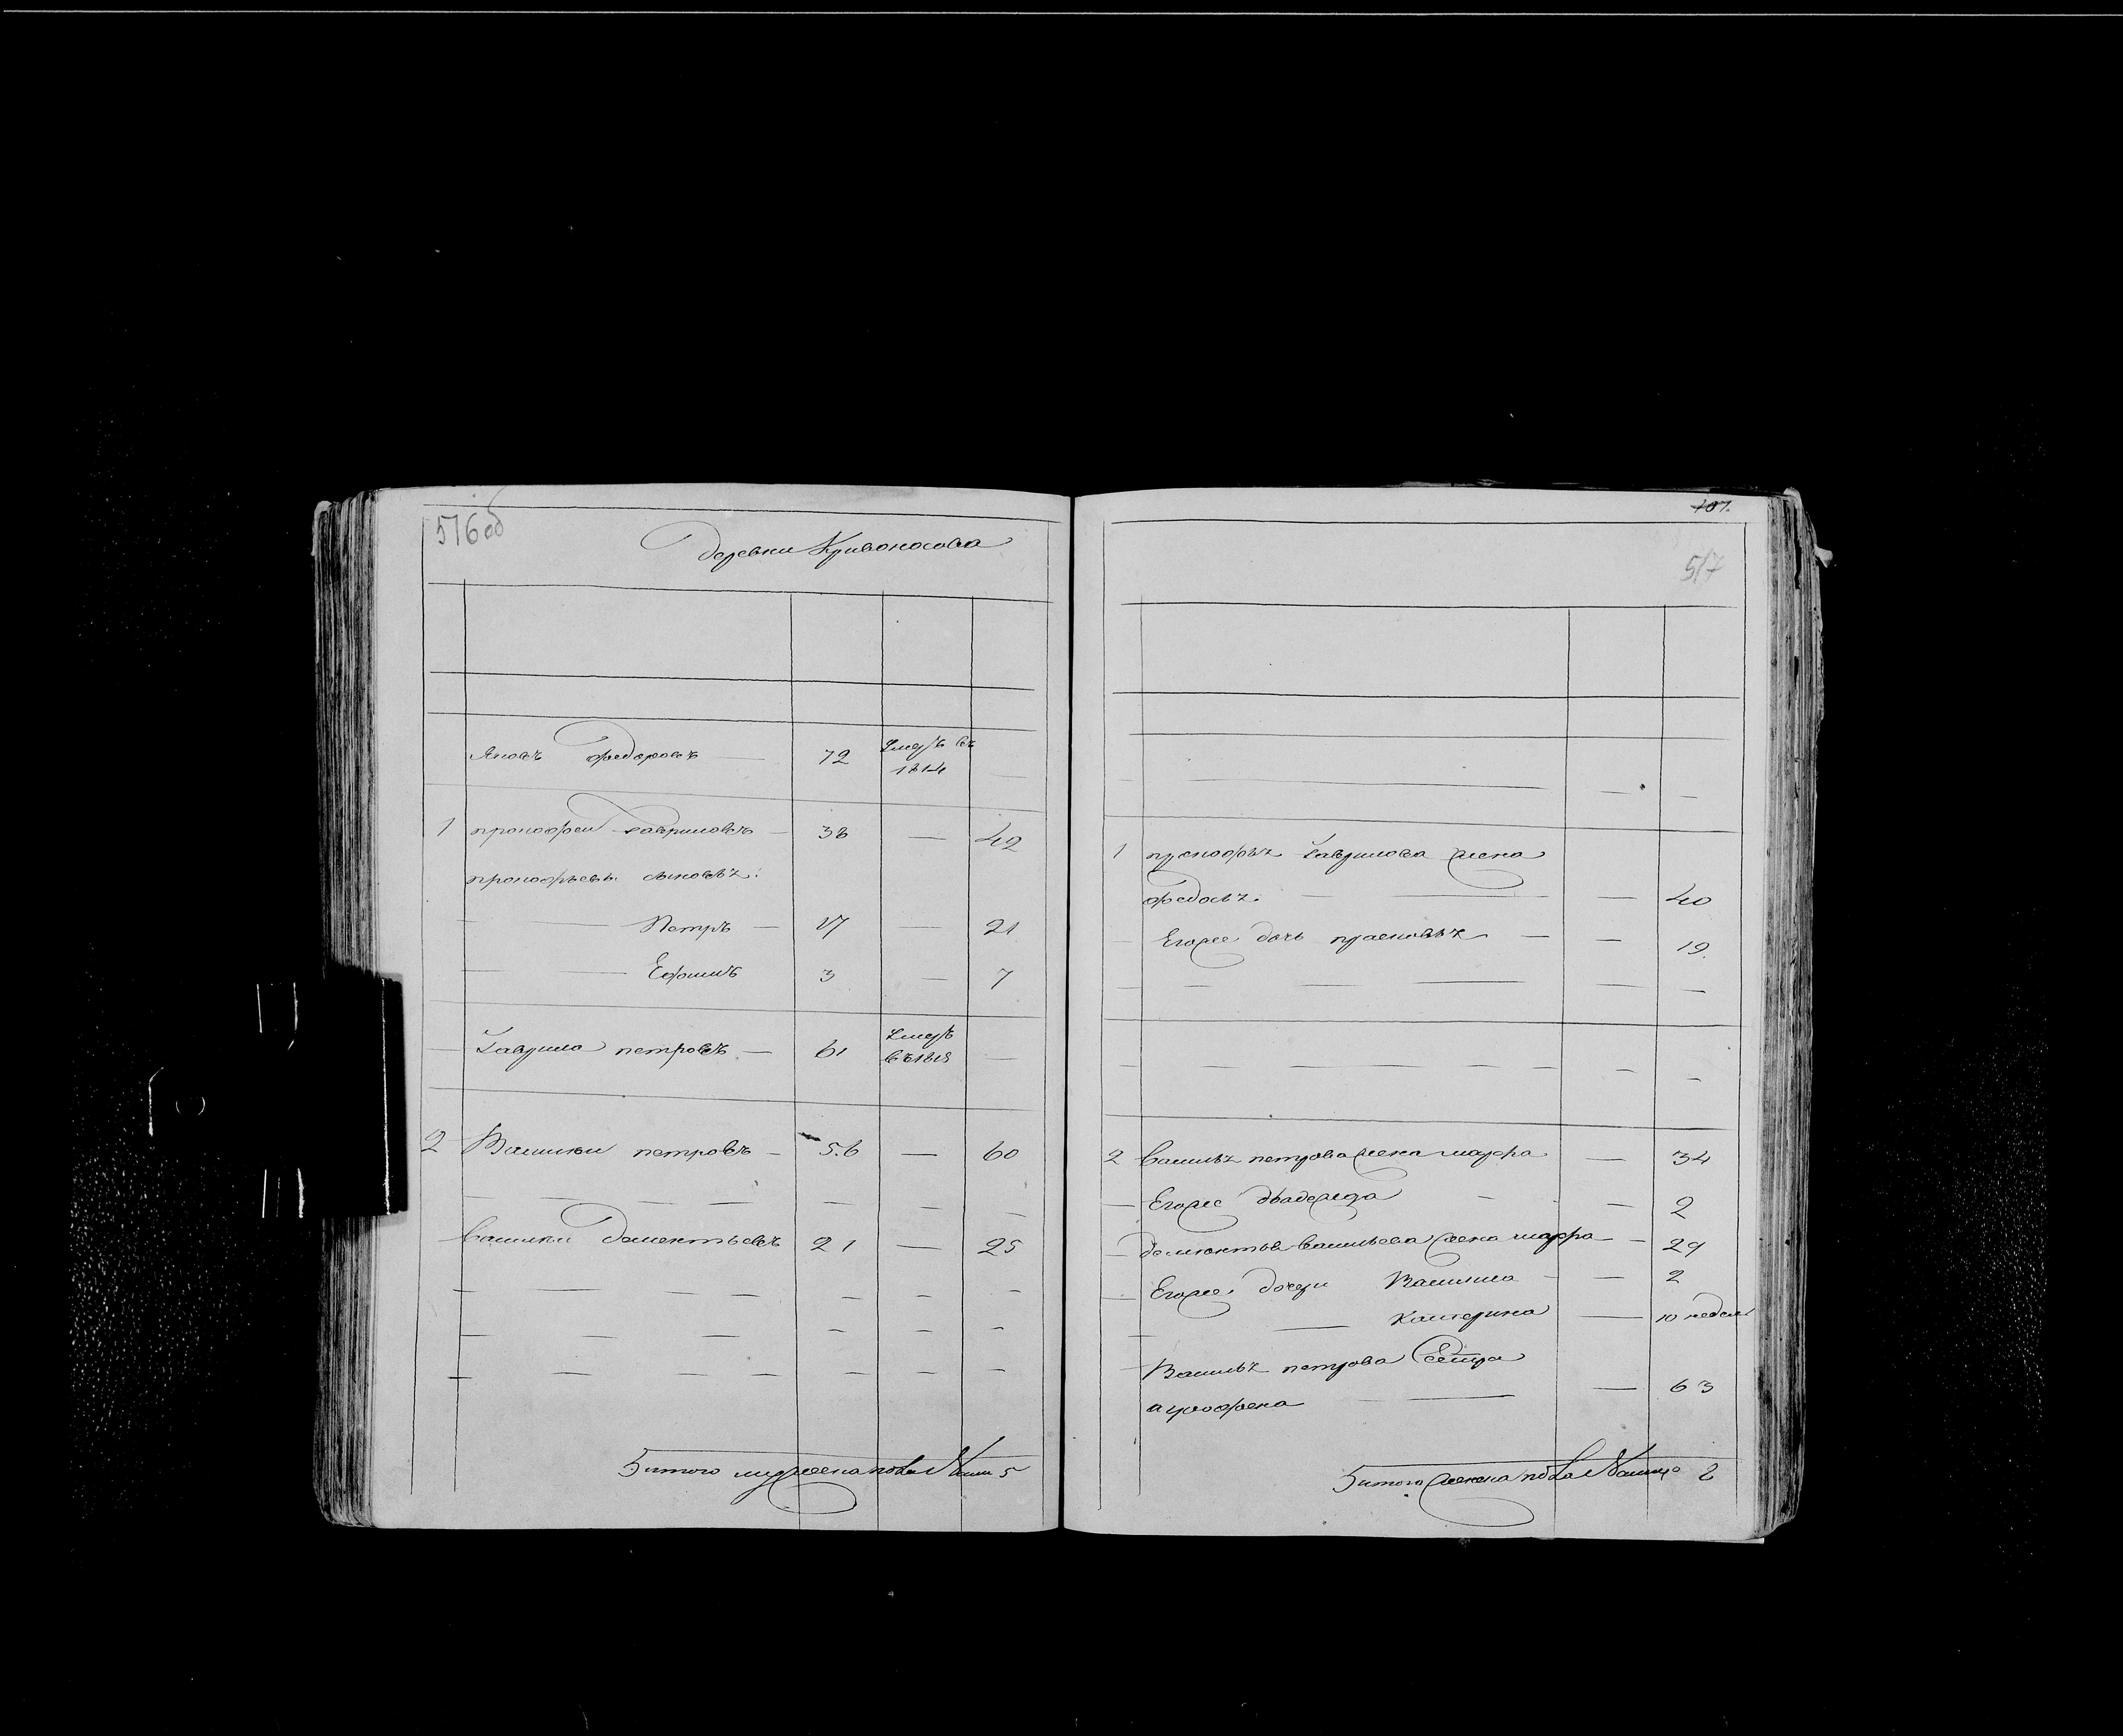 516об
Деревни Кривоносова
Яковъ Федоровъ 72 Умеръ въ
1814
1 прокофеи гавриловъ 38 42
прокофьевы сыновья:
Петръ 17 21
Ефимъ 3 7
Гаврило петровъ 61 Умеръ
въ 1815
2 Василеи петровъ 56 60
Василеи Дементьевъ 21 25
Итого мужеска пола 5
107.
517
1 прокофья Гаврилова жена
федосья 40
Его же дочь прасковья 19.
2 Василья петрова жена марфа 34
Его же 2
дементья Васильева жена марфа 29
Его же дочери Василиса 2
Катерина 10 недель
Василья петрова Сестра
аграфена 63
Итого женска пола